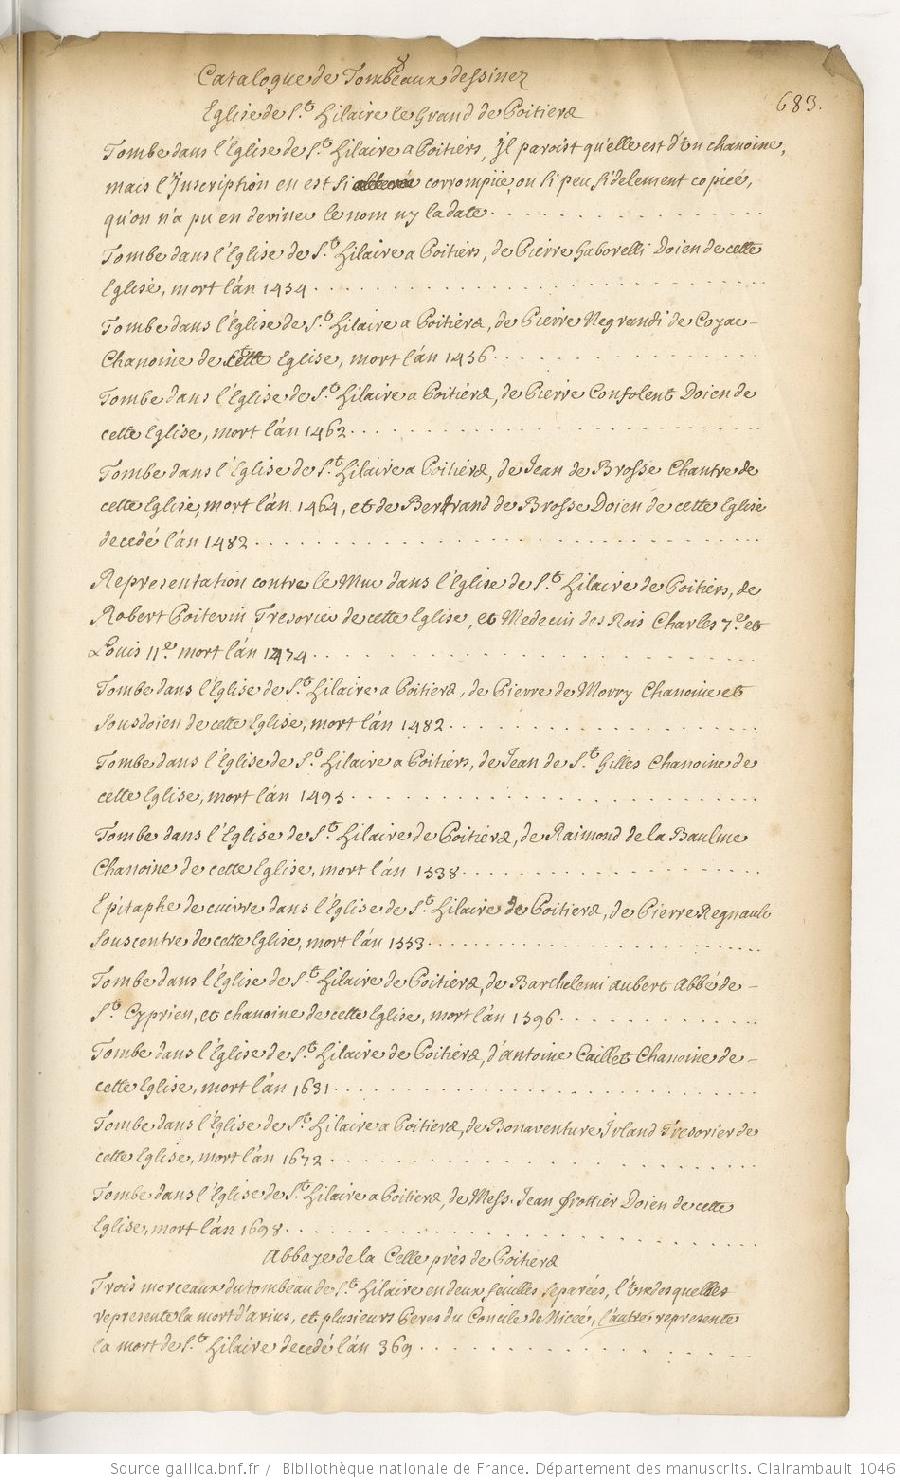 Catalogue de Tombeaux dessinez
683.
Eglise de S.t hilaire le Grand de Poitiers
Tombe dans l'Eglise de S.t hilaire a Poitiers, Jl paroist qu'elle est d'un chanoine,
mais l'Inscription en est si corrompüe, ou si peu fidelement copieé,
qu'on n'a pu en deviner le nom ny la date
Tombe dans l'Eglise de S.t hilaire a Poitiers, de Pierre haborelli Doien de cette
Eglise, mort l'án 1454
Tombe dans l'Eglise de S.t hilaire a Poitiers, de Pierre Negrandi de Cozac
Chanoine de cette Eglise, mort l'án 1456
Tombe dans l'Eglise de S.t hilaire a Poitiers, de Pierre Consolent Doien de
cette Eglise, mort l'án 1462
Tombe dans l'Eglise de S.t hilaire a Poitiers, de Jean de Brosse Chantre de
cette Eglise, mort l'án 1464, et de Bertrand de Brosse Doien de cette Eglise
decedé l'án 1482
Representation contre le Mur dans l'Eglise de S.t hilaire de Poitiers, de
Robert Poitevin Tresorier de cette Eglise, et Medecin des Rois Charles 7.e et
Louis 11.e mort l'án 1474
Tombe dans l'Eglise de S.t hilaire a Poitiers, de Pierre de Morry Chanoine et
Sousdoien de cette Eglise, mort l'án 1482
Tombe dans l'Eglise de S.t hilaire a Poitiers, de Jean de S.t Gilles Chanoine de
cette Eglise, mort l'án 1495
Tombe dans l'Eglise de S.t hilaire de Poitiers, de Raimond de la Baulme
Chanoine de cette Eglise, mort l'án 1538
Epitaphe de cuivre dans l'Eglise de S.t hilaire de Poitiers, de Pierre Regnault
Souscontre de cette Eglise, mort l'án 1553
Tombe dans l'Eglise de S.t hilaire de Poitiers, de Barthelemi aubert Abbé de
S.t Cyprien, et chanoine de cette Eglise, mort l'án 1596
Tombe dans l'Eglise de S.t hilaire de Poitiers, d'antoine Caillet Chanoine de
cette Eglise, mort l'án 1631
Tombe dans l'Eglise de S.t hilaire a Poitiers, de Bonaventure Irland Tresorier de
cette Eglise, mort l'án 1672
Tombe dans l'Eglise de S.t hilaire a Poitiers, de Mess. Jean frottier Doien de cette
Eglise, mort l'án 1698
Abbaye de la Celle près de Poitiers
Trois morceaux du tombeau de S.t hilaire en deux feuilles separées, l'une desquelles
represente la mort d'arius, et plusieurs Peres du Concile de Niceé, l'autre represente
la mort de S.t hilaire decedé l'án 369
Source gallica.bnf.fr / Bibliothèque nationale de France. Département des manuscrits. Clairambault 1046